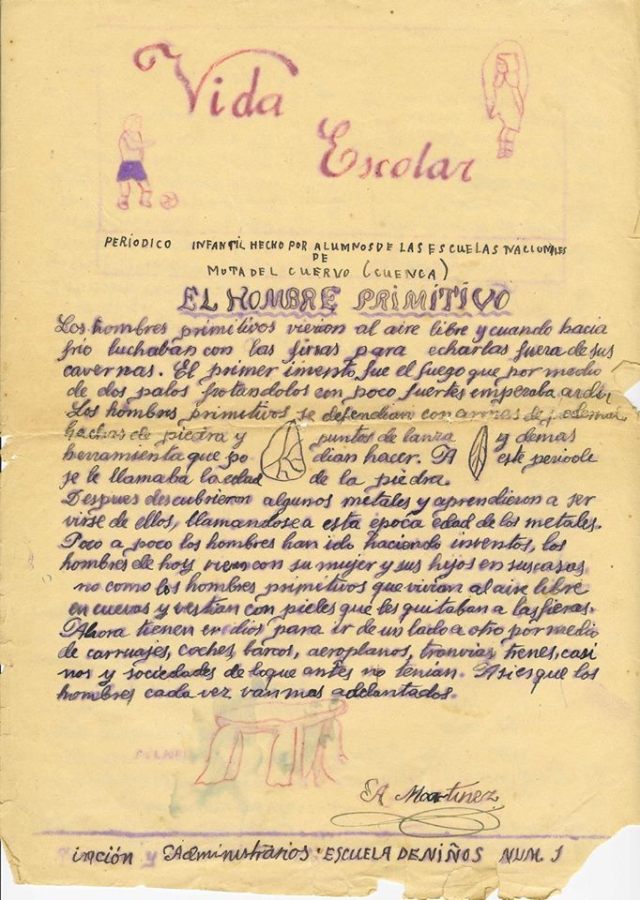 Vida
Escolar
PERIODICO INFANTIL HECHO POR ALUMNOS DE LAS ESCUELAS NACIONALES
DE
MOTA DEL CUERVO (CUENCA)
EL HOMBRE PRIMITIVO
Los hombres primitivos vieron al aire libre y cuando hacia
frio luchaban con las firras para echarlas fuera de sus
cavernas. El primer imento fue el fuego que por medio
de dos palos frotandolos con poco fuertes empezaba arder
Los hombres primitivos se defendian con armas de
hachas de piedra y puntos de lanza y demas
herramienta que podian hacer. A este periode
se le llamaba la edad de la piedra.
Despues descubrieron algunos metales y aprendieron a ser
virse de ellos, llamandose a esta epoca edad de los metales.
Poco a poco los hombres han ido haciendo inventos, los
hombres de hoy viven con su mujer y sus hijos en sus casas
no como los hombres primitivos que vivian al aire libre
en cuevas y vestian con pieles que les quitaban a las fieras.
Ahora tienen medios para ir de un lado a otro por medio
de carruajes, coches, barcos, aeroplanos, tranvias trenes, casi
nos y sociedades de loque antes no tenian. Asi es que los
hombres cada vez van mas adelantados.
A Martinez
y Administrarios ESCUELA DE NIÑOS NUM. 1